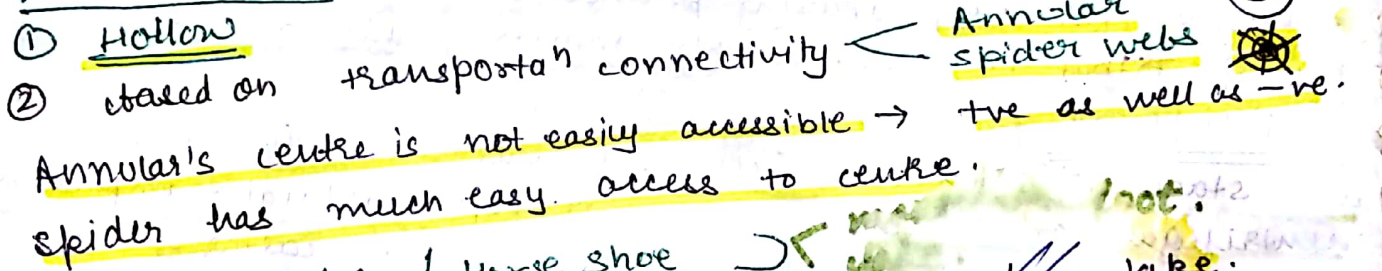 ① Hollow
② based on transportaⁿ connectivity < Annular
spider webs
Annular's centre is not easily accessible → +ve as well as -ve.
spider has much easy. access to centre.
shoe